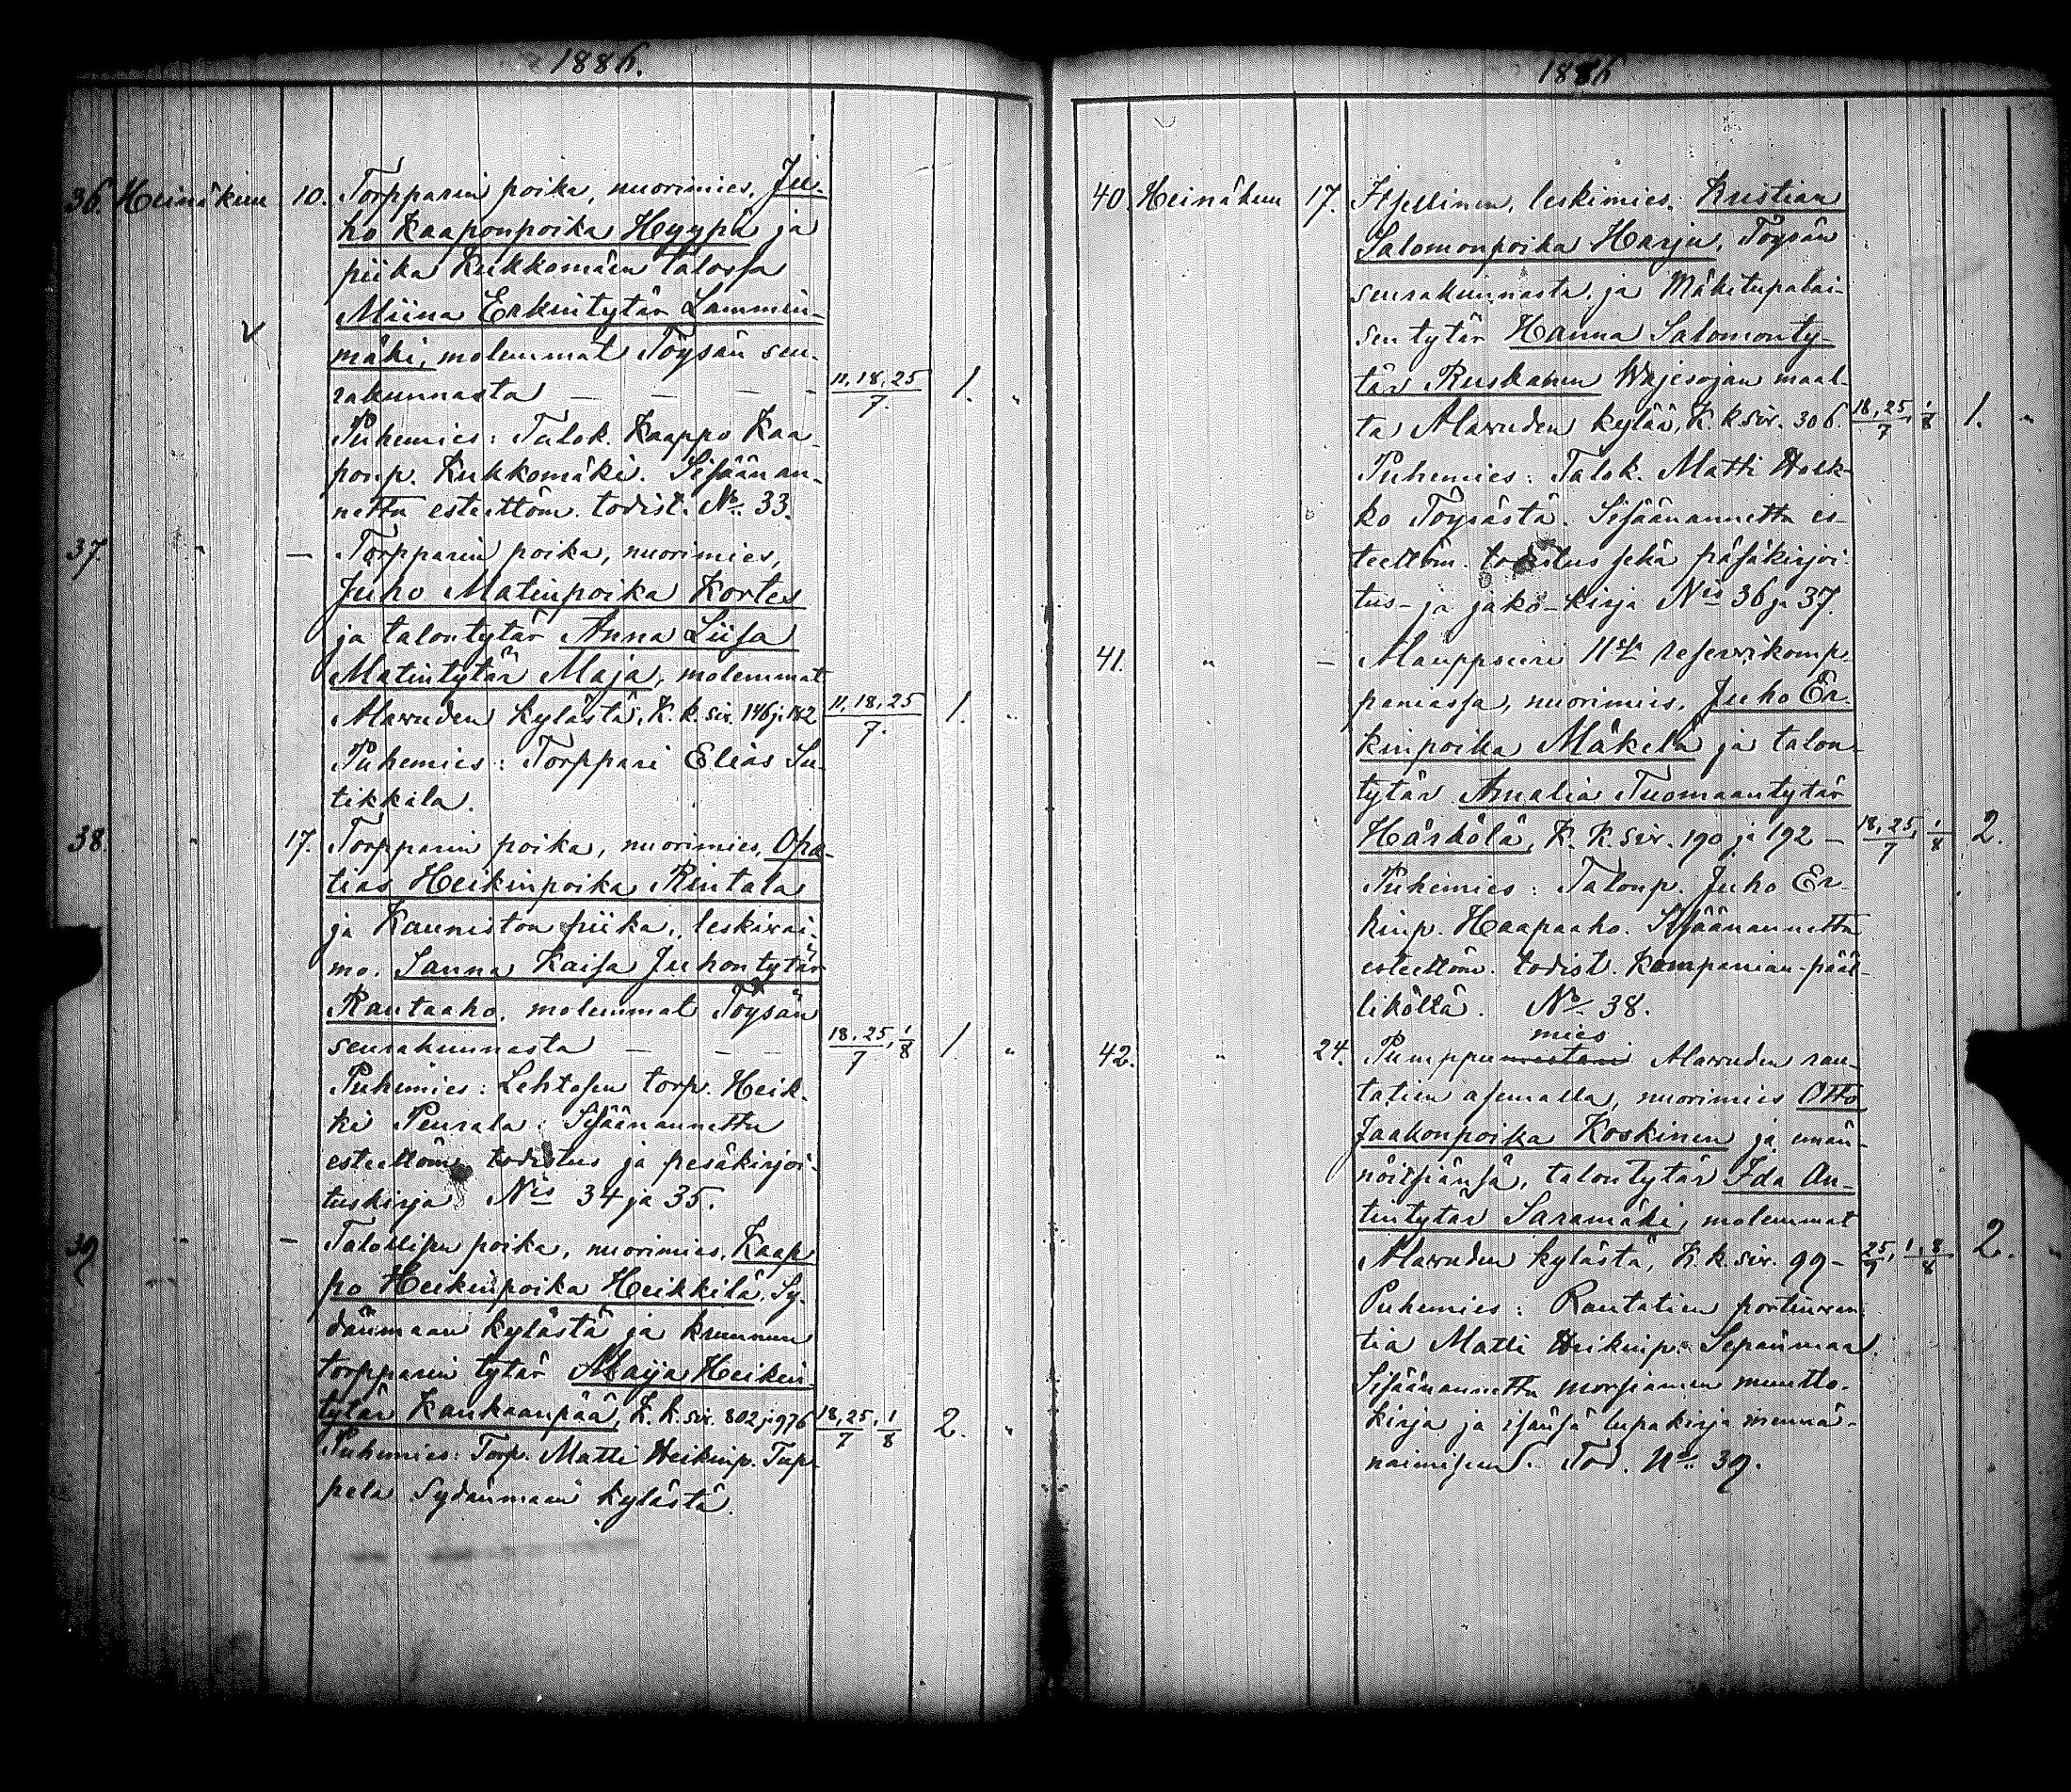 1886.
36. Heinäkuu 10. Torpparin poika, nuorimies, Ju-
ho Kaaponpoika Hyypä ja
piika Kukkomäen talossa
Miina Erkintytär Lammin-
mäki, molemmat Töysän seu-
rakunnasta — — — - 11,18,25/7. 1. "
Puhemies: Talok. Kaappo Kaa-
ponp. Kukkomäki. Sisäänan-
nettu esteettöm. todist. No 33.
37. " — Torpparin poika, nuorimies,
Juho Matinpoika Kortes
ja talontytär Anna Liisa
Matintytär Maja, molemmat
Alavuden kylästä, K. k. siv. 146 ja 182 11,18,25/7. 1. "
Puhemies: Torppari Elias Su-
tikkila.
38. " 17. Torpparin poika, nuorimies, Opa-
tias Heikinpoika Rintala
ja Kauniston piika, leskivai-
mo. Sanna Kaisa Juhontytär
Rautaaho, molemmat Töysän
seurakunnasta — — — 18,25/7, 1/8 1 "
Puhemies: Lehtosen torp. Heik-
ki Peurala. Sisäänannettu
esteettöm. todistus ja pesäkirjoi-
tuskirja Nis 34 ja 35.
39 " — Talollisen poika, nuorimies, Kaap
po Heikinpoika Heikkilä, Sy-
dänmaan kylästä ja kruunun
torpparin tytär Maija Heikin-
tytär Kankaanpää, K. k. siv. 802 ja 976 18,25/7, 1/8 2. "
Puhemies: Torp. Matti Heikinp. Tup-
pela Sydänmaan kylästä.
1886
40. Heinäkuu 17. Itsellinen, leskimies, Kustian
Salomonpoika Harju, Töysän
seurakunnasta, ja Mäkitupalai-
sen tytär Hanna Salomonty-
tär Ruskanen maal-
ta Alavuden kylää, K. k. siv. 306. 18,25/7, 1/8 1. "
Puhemies: Talok. Matti
ko Töysästä. Sisäänannettu es-
teettöm. todistus sekä päsäkirjoi-
tus- ja jako-kirja Nis 36 ja 37.
41. " — Alauppseeri 11sta reservikomp-
paniassa, nuorimies, Juho Er-
kinpoika Mäkelä ja talon-
tytär Amalia Tuomaantytär
Härkölä, K. K. siv. 190 ja 192 — 18,25/7, 1/8 2.
Puhemies: Talonp. Juho Er-
kinp. Haapaaho. Sisäänannettu
esteettöm. todist. Kompanian-pääl-
liköltä. No 38.
mies
42. " 24. Pumppumestari Alavuden rau-
tatien asemalla, nuorimies Otto
Jaakonpoika Koskinen ja emän-
nöitsiänsä, talontytär Ida An-
tintytär Saramäki, molemmat
Alavuden kylästä, K. k. siv. 99 — 25/7, 1,8/8 2. "
Puhemies: Rautatien portinvar-
tia Matti Heikinp. Sepänmaa.
Sisäänannettu morsiamen muutto-
kirja ja isänsä lupakirja mennä
naimiseen. Tod. No 39.